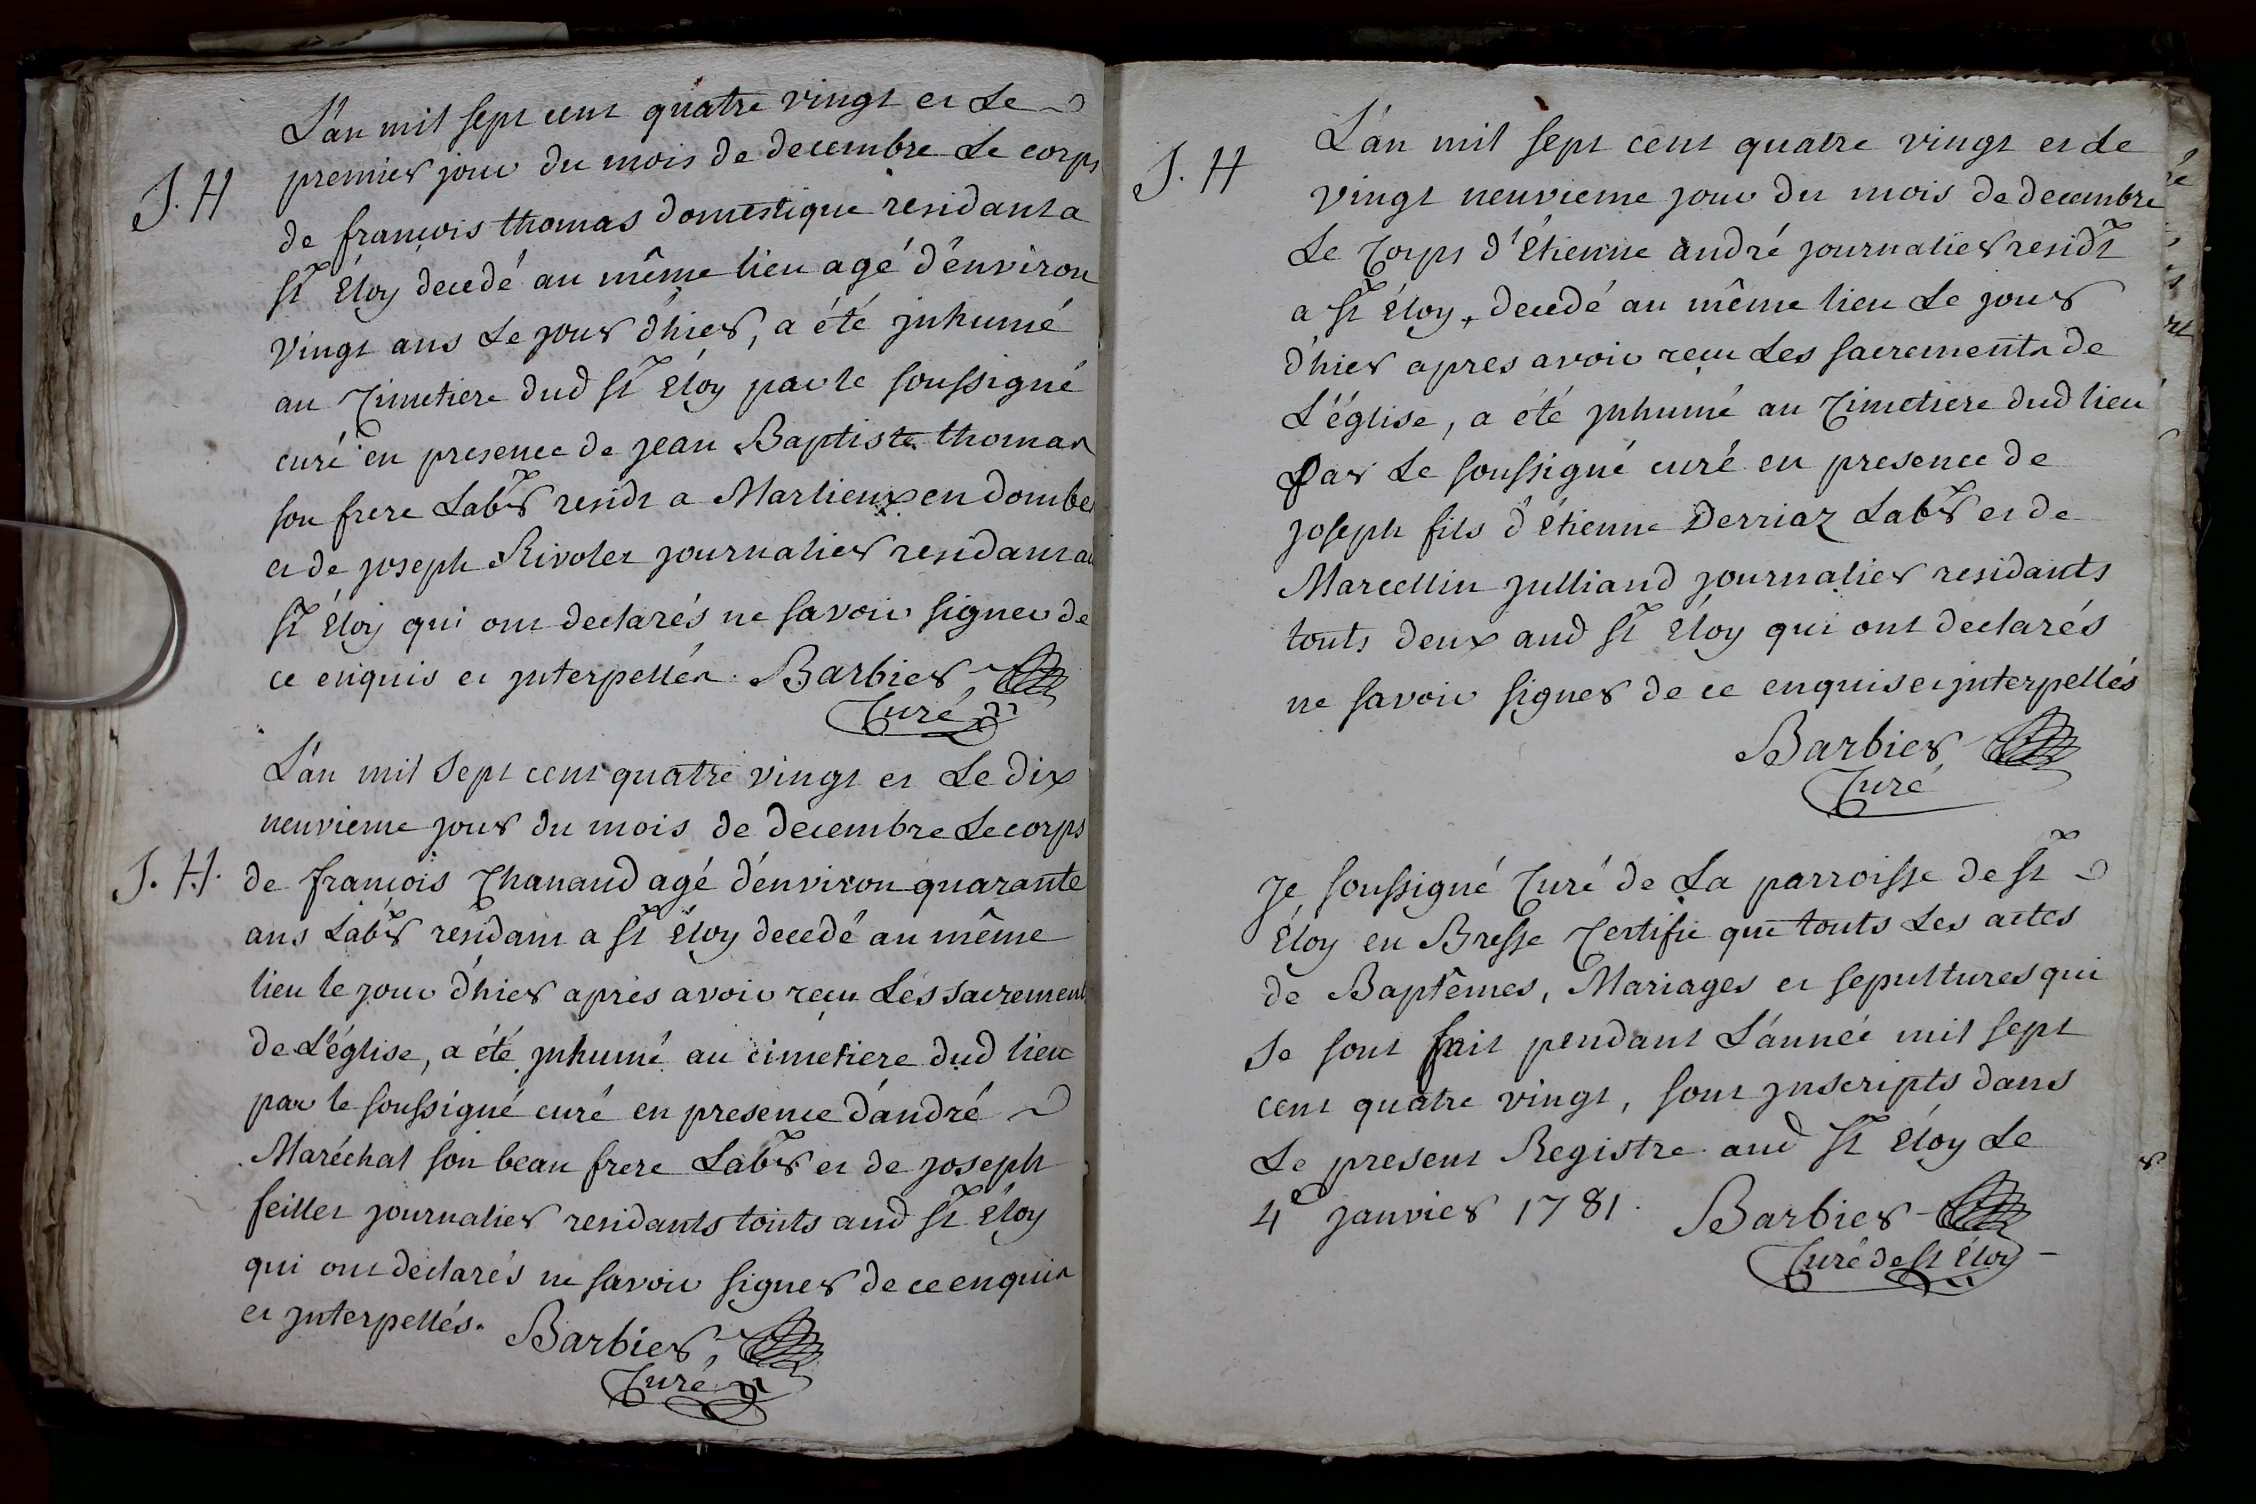 L'an mil sept cent quatre vingt et Le
premier jour du mois de decembre Le corps
S. H
de françois thomas domestique residant a
St Éloy decedé au même lieu agé d'environ
vingt ans Le jour d'hier, a été jnhumé
au Cimetiere dud St Éloy par le soussigné
curé en presence de jean Baptiste thomas
son frere Labr residt a Marlieux en dombe
et de joseph Rivolet journalier residant au
St Éloy qui ont declarés ne savoir signer de
ce enquis et jnterpellés. Barbier,
Curé
L'an mil sept cent quatre vingt et Le dix
neuvieme jour du mois de decembre Le corps
S. H.
de françois Chanaud agé d'environ quarante
ans Labr residant a St Éloy decedé au même
lieu le jour d'hier après avoir reçu Les sacrement
de L'église, a été jnhumé au cimetiere dud lieu
par le soussigné curé en presence d'andré
Maréchal son beau frere Labr et de joseph
feillet journalier residants touts aud St Éloy
qui ont declarés ne savoir signer de ce enquis
et jnterpellés. Barbier,
Curé
L'an mil sept cent quatre vingt et de
S. H
vingt neuvieme jour du mois de decembre
Le Corps d'Étienne andré journalier residt
a St Éloy, decedé au même lieu Le jour
d'hier apres avoir reçu Les sacrements de
L'église, a été jnhumé au Cimetiere dud lieu
Par Le soussigné curé en presence de
joseph fils d'étienne Derriaz Labr et de
Marcellin julliand journalier residants
touts deux aud St Éloy qui ont declarés
ne savoir signer de ce enquis et jnterpellés
Barbier,
Curé
Je soussigné Curé de La parroisse de St
Éloy en Bresse Certifie que touts Les actes
de Baptêmes, Mariages et sepultures qui
se sont fait pendant L'année mil sept
cent quatre vingt, sont jnscripts dans
Le present Registre aud St Éloy Le
4e janvier 1781. Barbier
Curé de St Éloy